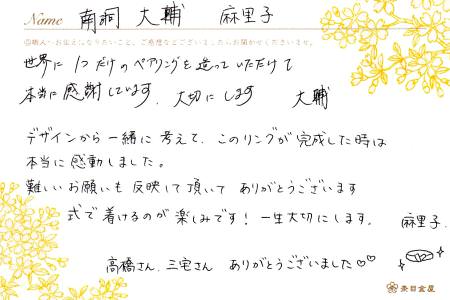 Name 南 大輔 麻里子
◎職人へお伝えになりたいこと、ご感想などございましたらお聞かせくださいませ。
世界に1つだけのペアリングを造っていただけて
本当に感謝しています。大切にします 大輔
デザインから一緒に考えて、このリングが完成した時は
本当に感動しました。
難しいお願いも反映して頂いて ありがとうございます
式で着けるのが楽しみです！一生大切にします。 麻里子
高橋さん、三宅さん ありがとうございました♡♡
杢目金屋